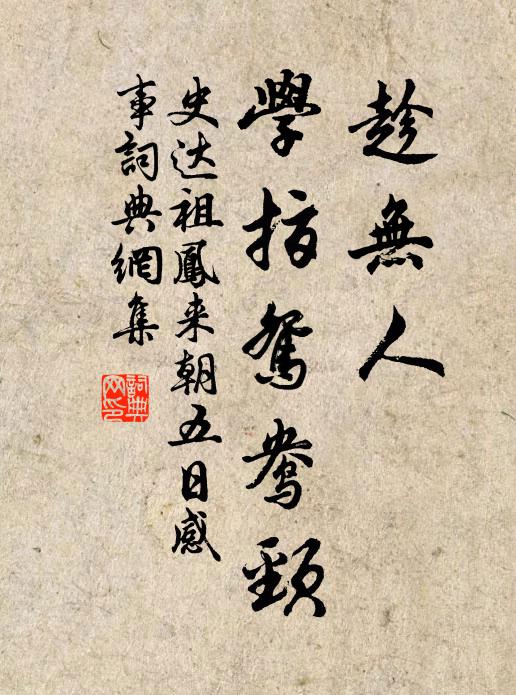 趁無人
學指鴛鴦頸
史达祖鳳来朝五日感
事詞典網集
詞典
网印